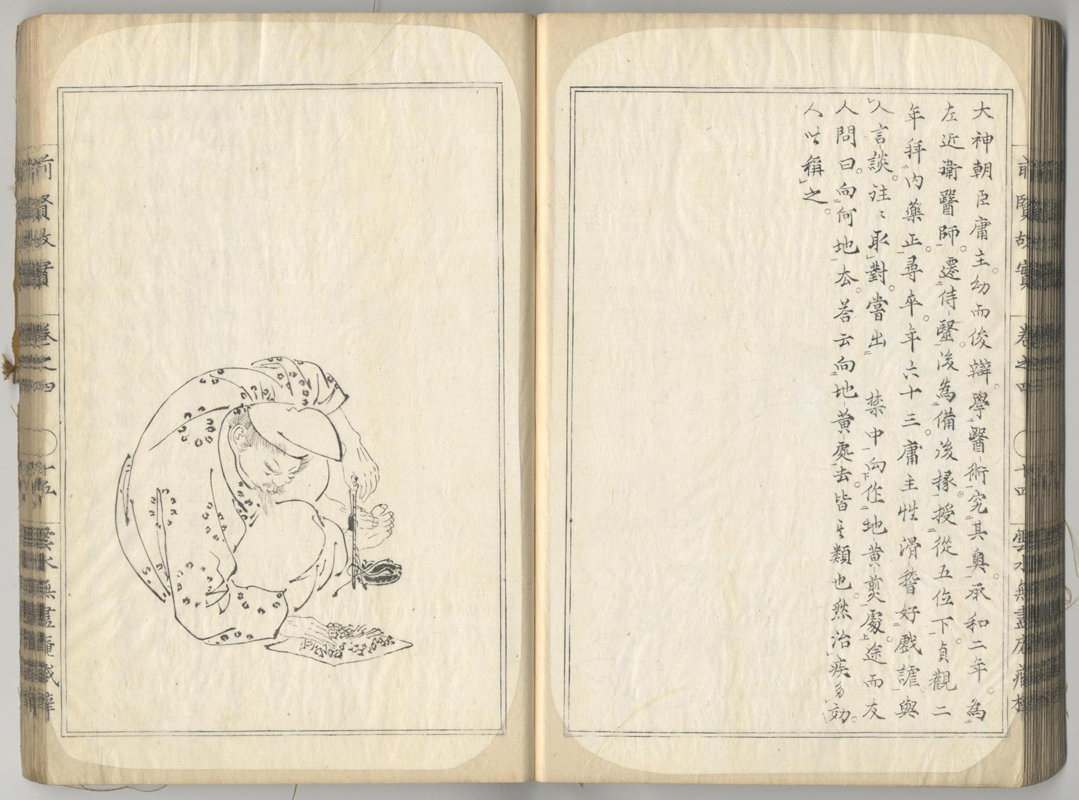 大神朝臣庸主。幼而俊辯。學醫術究其奥。承和二年。為
左近衛醫師。遷侍醫後為備後掾。授從五位下。貞觀二
年拜内藥正。尋卒。年六十三。庸主性滑稽好戲謔與
人言談。注〻取對嘗出　禁中向作地黄煎處。途而友
人問曰。向何地厺。荅云向地黄處去。皆其類也。然治疾多効
人以稱之。
前賢故實　卷之四　十四　雲水無盡庵藏
前賢故實　卷之四　雲水無盡庵藏